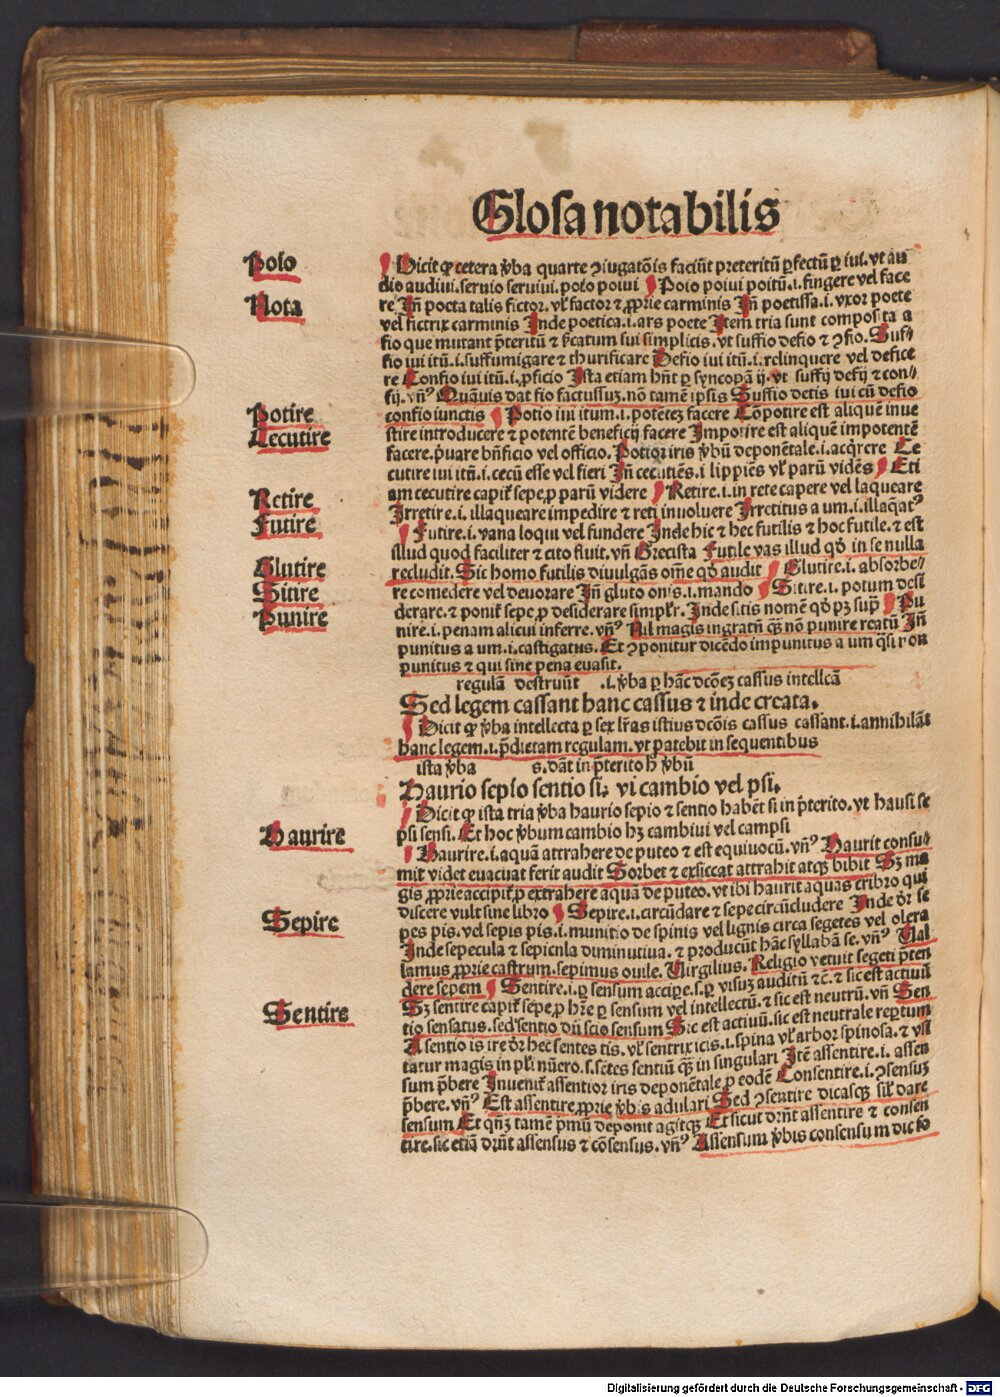 Glosa notabilis
Polo
Nota
Potire
Cecutire
Retire
Futire
Glutire
Sitire
Punire
Haurire
Sepire
Sentire
Dicit ꝙ cetera v̄ba quarte ꝯiugatōis faciūt preteritū ꝑfectū ꝑ iui. vt au
dio audiui. seruio seruiui. polo poiui Poio poiui poitū .i. fingere vel face
re Jn̄ poeta talis fictor. vl̓ factor ⁊ ꝓprie carminis Jn̄ poetissa .i. vxor poete
vel fictrix carminis Inde poetica .i. ars poete Item tria sunt composita a
fio que mutant p̄teritū ⁊ significatum sui simplicis. vt suffio defio ⁊ ꝯfio. Suf-
fio iui itū .i. suffumigare ⁊ thurificare Defio iui itū .i. relinquere vel defice
re Confio iui itū .i. ꝓficio Ista etiam hn̄t ꝑ syncopā ij. vt suffij defij ⁊ con-
fij. vn̄ꝰ Quāuis dat fio factussuꝫ. nō tamē ipsis Suffio detis iui cū defio
confio iunctis Potio iui itum .i. potēteꝫ facere Cōpotire est aliquē inue
stire introducere ⁊ potentē beneficij facere Impotire est aliquē impotentē
facere. p̄uare bn̄ficio vel officio. Potior iris v̄bū deponētale .i. acq̄rere Ce
cutire iui itū .i. cecū esse vel fieri Jn̄ cecutiēs .i. lippiēs vl̓ parū vidēs Eti
am cecutire capit̉ sepe ꝓ parū videre Retire .i. in rete capere vel laqueare
Irretire .i. illaqueare impedire ⁊ reti inuoluere Irretitus a um .i. illaq̄atꝰ
Futire .i. vana loqui vel fundere Inde hic ⁊ hec futilis ⁊ hoc futile. ⁊ est
illud quod faciliter ⁊ cito fluit. vn̄ Grecista Futile vas illud qd̓ in se nulla
recludit. Sic homo futilis diuulgās om̄e qd̓ audit Glutire .i. absorbe-
re comedere vel deuorare Jn̄ gluto onis .i. mando Sitire .i. potum desi
derare. ⁊ ponit̉ sepe ꝓ desiderare simpl̓r. Inde sitis nomē qd̓ pꝫ sup̄ Pu
nire .i. penam alicui inferre. vn̄ꝰ Nil magis ingratū qꝫ nō punire reatū Jn̄
punitus a um .i. castigatus. Et ꝯponitur dicēdo impunitus a um q̄si non
punitus ⁊ qui sine pena euasit.
regulā destruūt .i. v̄ba ꝑ hāc dcōeꝫ cassus intellcā
Sed legem cassant hanc cassus ⁊ inde creata.
Dicit ꝙ v̄ba intellecta ꝑ sex lr̄as istius dcōis cassus cassant .i. annihilāt
hanc legem .i. p̄dictam regulam. vt patebit in sequentibus
ista v̄ba s. dāt in p̄terito h̓ v̄bū
Haurio sepio sentio si; vi cambio vel psi.
Dicit ꝙ ista tria v̄ba haurio sepio ⁊ sentio habēt si in p̄terito. vt hausi se
psi sensi. Et hoc v̄bum cambio hꝫ cambiui vel campsi
Haurire .i. aquā attrahere de puteo ⁊ est equiuocū. vn̄ꝰ Haurit consu-
mit videt euacuat ferit audit Sorbet ⁊ exsiccat attrahit atqꝫ bibit Sꝫ ma
gis ꝓprie accipit̉ ꝓ extrahere aquā de puteo. vt ibi haurit aquas cribro qui
discere vult sine libro Sepire .i. circūdare ⁊ sepe circūcludere Inde dr̄ se
pes pis. vel sepis pis .i. munitio de spinis vel lignis circa segetes vel olera
Inde sepecula ⁊ sepicula diminutiua. ⁊ producūt hāc syllabā se. vn̄ꝰ Val
lamus ꝓprie castrum. sepimus ouile. Virgilius. Religio vetuit segeti p̄ten
dere sepem Sentire .i. ꝑ sensum accipe. s. ꝑ visuꝫ auditū ⁊c. ⁊ sic est actiuū
Sꝫ sentire capit̉ sepe ꝓ hr̄e ꝑ sensum vel intellectū. ⁊ sic est neutrū. vn̄ Sen
tio sensatus. sed sentio dū scio sensum Sic est actiuū. sic est neutrale reptum
A sentio is ire dr̄ hec sentes tis. vl̓ sentrix icis .i. spina vl̓ arbor spinosa. ⁊ vsi
tatur magis in pl̓i nūero. s. sētes sentiū qꝫ in singulari Itē assentire .i. assen
sum p̄bere Inuenit̉ assentior iris deponētale ꝓ eodē Consentire .i. ꝯsensuꝫ
p̄bere. vn̄ꝰ Est assentire ꝓprie v̄bis adulari Sed ꝯsentire dicasqꝫ sil̓ dare
sensum Et qn̄qꝫ tamē pmū deponit agitqꝫ Et sicut dr̄nt assentire ⁊ consen
tire. sic etiā dr̄nt assensus ⁊ cōsensus. vn̄ꝰ Assensum v̄bis consensum dic fo
Digitalisierung gefördert durch die Deutsche Forschungsgemeinschaft - DFG